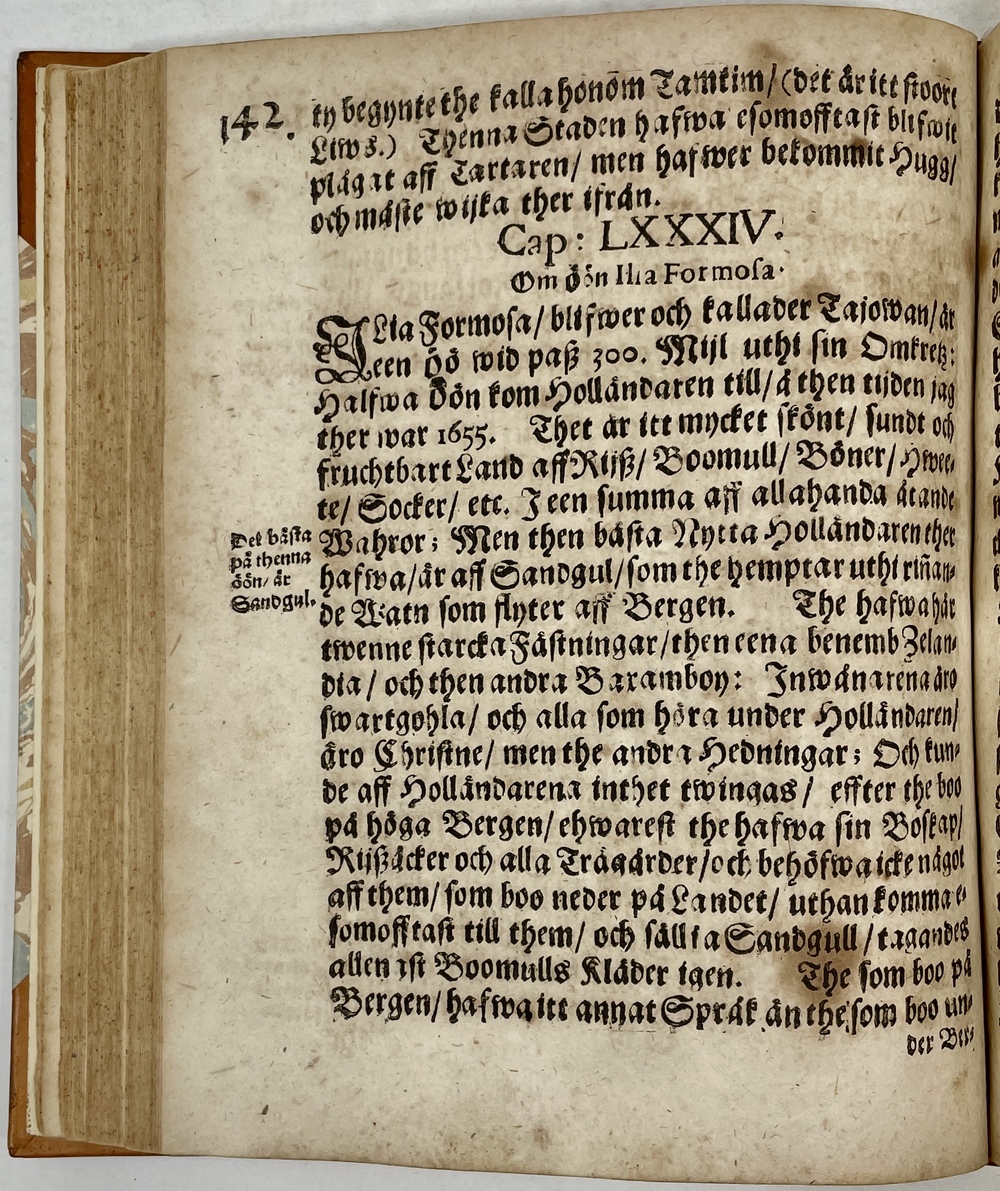 142.
ty begynte the kalla honom Tamkim/ (det är itt stoort
Liws.) Thenna Staden hafwa esomofftast blifwit
plågat aff Tartaren/ men hafwer bekommit Hugg/
och måste wijka ther ifrån.
Cap: LXXXIV.
Om öön Ilia Formosa.
ILia Formosa/ blifwer och kallader Tajowan/ är
een öö wid paß 300. Mijl uthi sin Omkretz:
Halfwa öön kom Holländaren till/ å then tijden jag
ther war 1655. Thet är itt mycket skönt/ sundt och
fruchtbart Land aff Rijß/ Boomull/ Böner/ Hwee-
te/ Socker/ etc. J een summa aff allahanda ätande
Wahror; Men then bästa Nytta Holländaren ther
hafwa/ är aff Sandgul/ som the hemptar uthi riñan-
de Watn som flyter aff Bergen. The hafwa här
twenne starcka Fästningar/ then eena benemb Zelan-
dia/ och then andra Baxamboy: Inwånarena äro
swartgohla/ och alla som höra under Holländaren/
äro Christne/ men the andra Hedningar; Och kun-
de aff Holländarena inthet twingas/ effter the boo
på höga Bergen/ ehwarest the hafwa sin Boskap/
Rijßäcker och alla Trägårder/ och behöfwa icke något
aff them/ som boo neder på Landet/ uthan komma e-
somofftast till them/ och sällia Sandgull/ tagandes
allenist Boomulls Kläder igen. The som boo på
Bergen/ hafwa itt annat Språk än the som boo un-
der Ber-
Det bästa
på thenna
öön/ är
Sandgul.